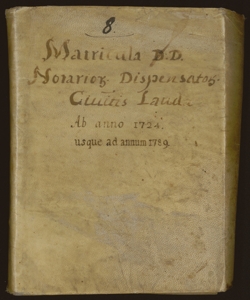 8.
Matricula D.D.
Notarior. Dispensator.
Civitis Laud.
Ab anno 1724.
usque ad annum 1789.